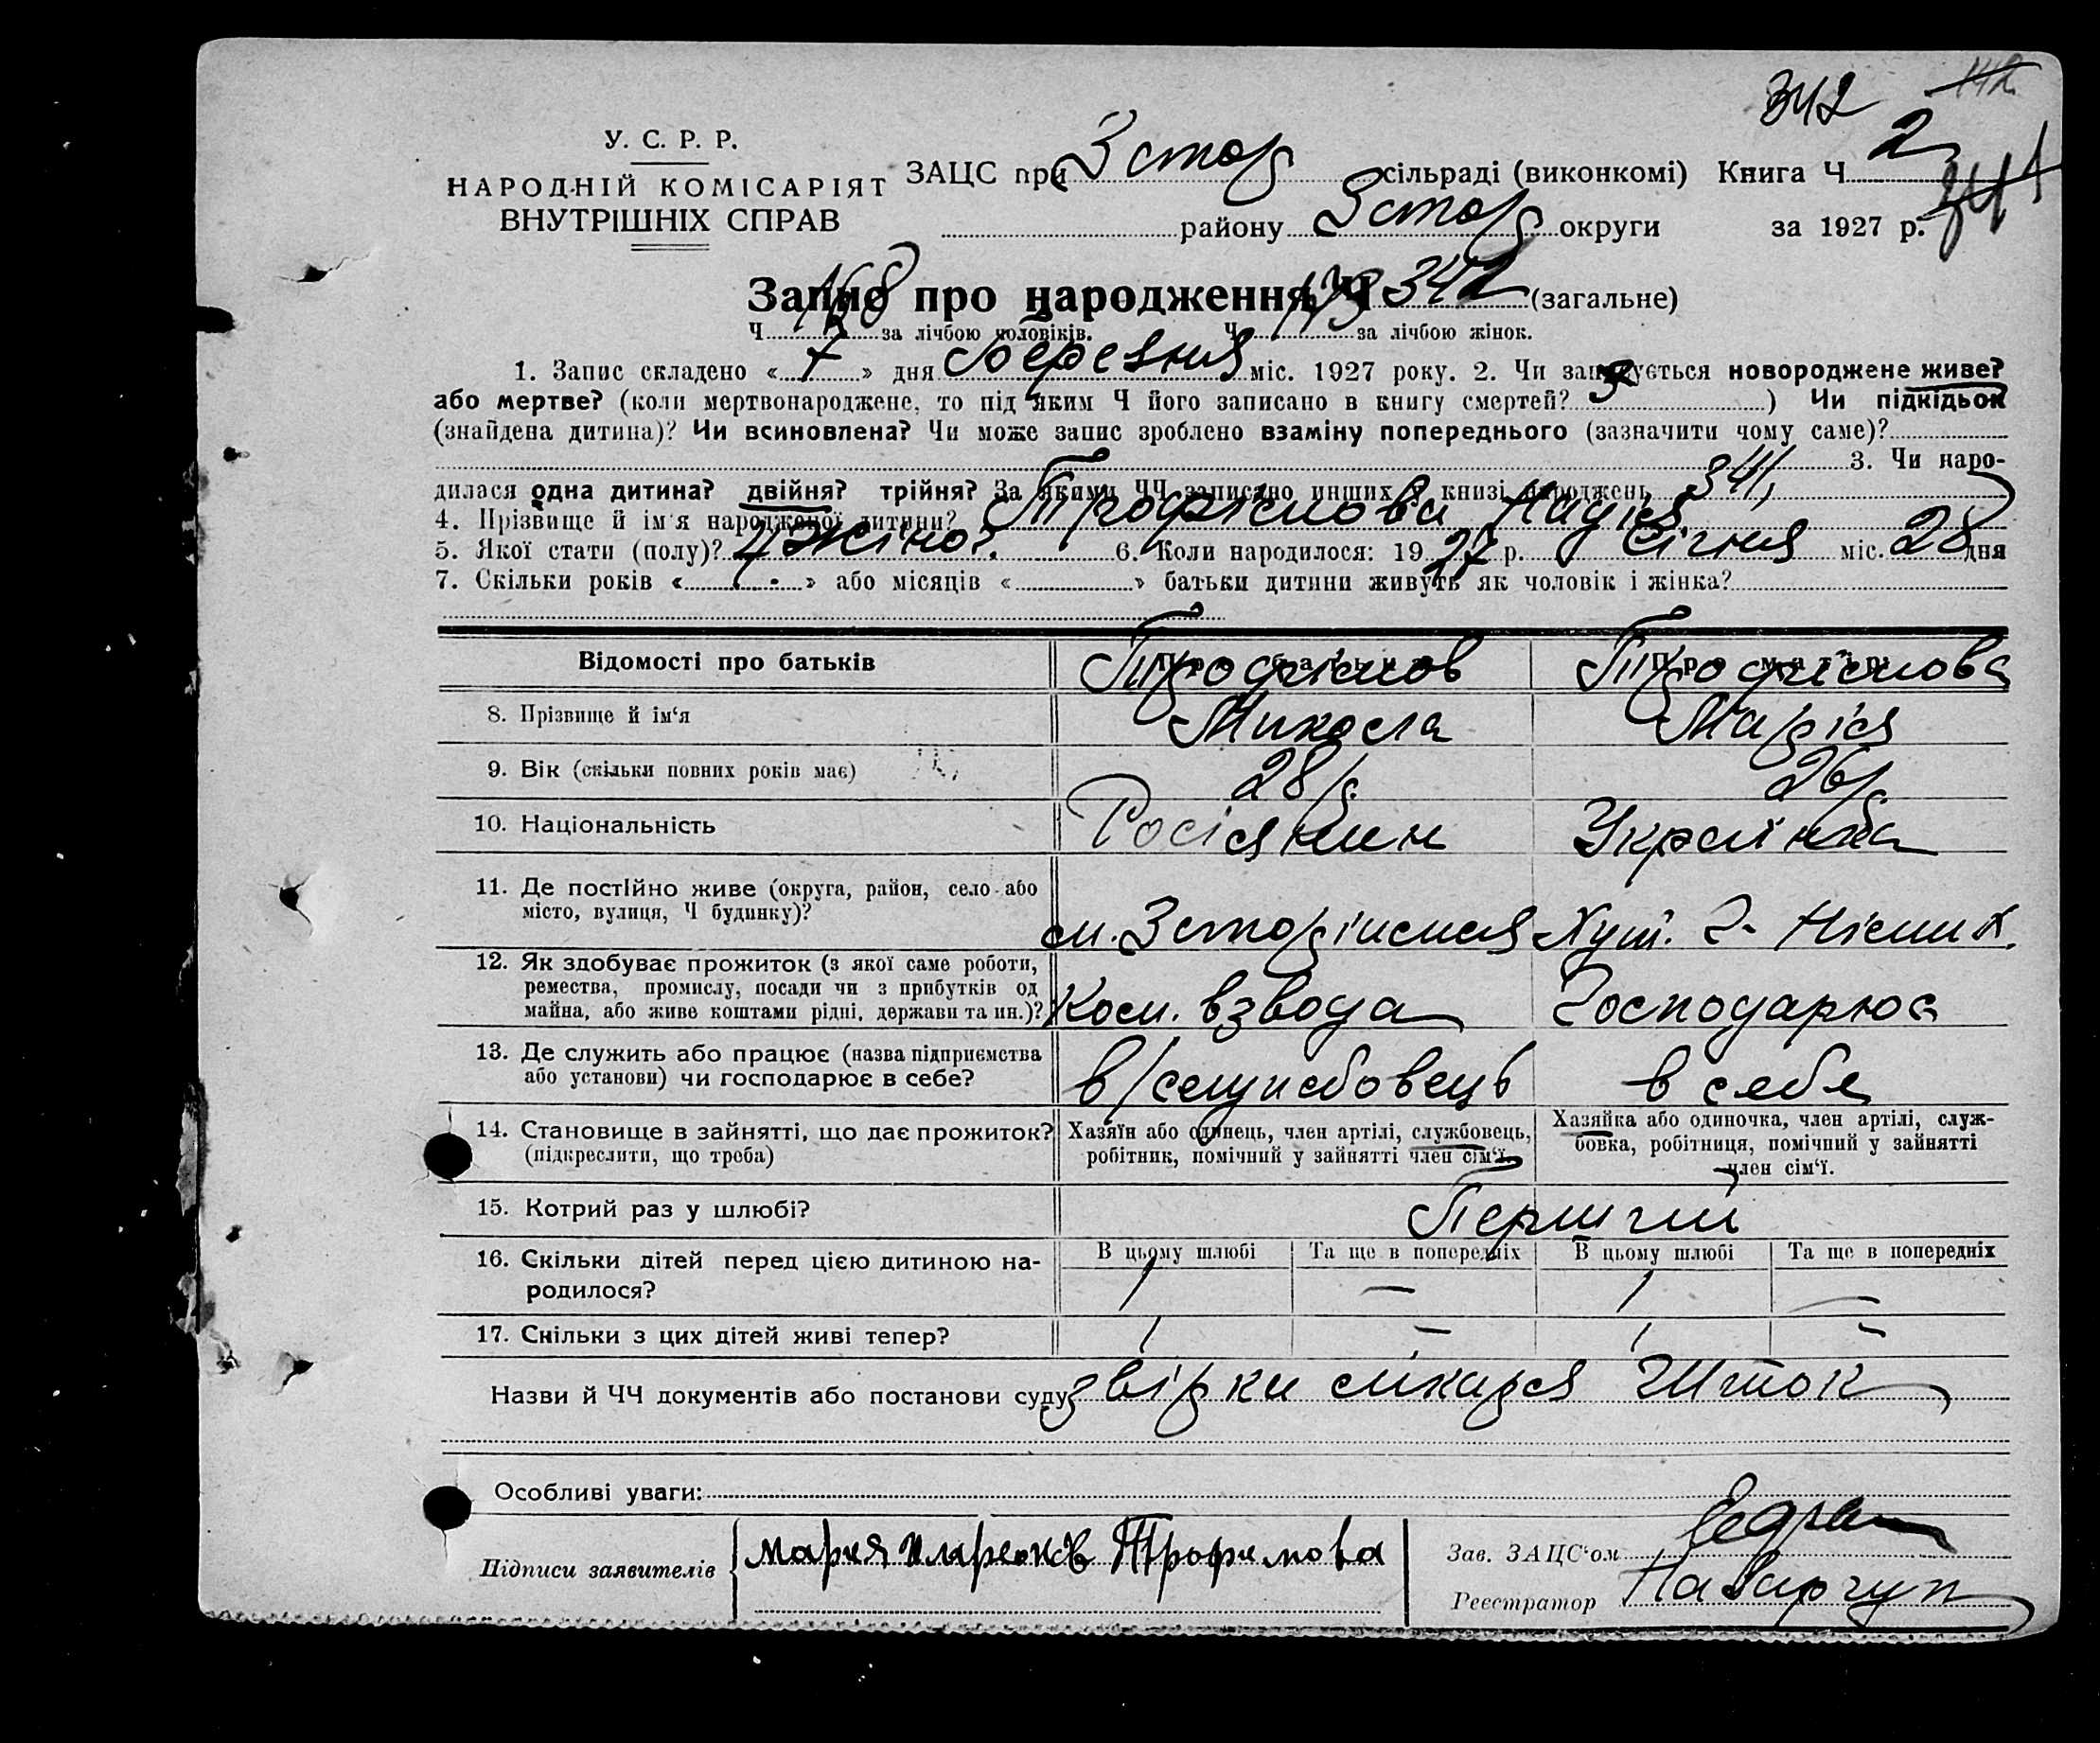 342
У. С. Р. Р.
НАРОДНІЙ КОМІСАРІЯТ
ВНУТРІШНІХ СПРАВ
ЗАЦС при сільраді (виконкомі) Книга Ч 2
району округи за 1927 р.
Запис про народження Ч 342 (загальне)
Ч 168 за лічбою чоловіків. Ч 173 за лічбою жінок.
1. Запис складено « 7 » дня березня міс. 1927 року. 2. Чи записується новороджене живе?
або мертве? (коли мертвонароджене, то під яким Ч його записано в книгу смертей? ) Чи підкідьок
(знайдена дитина)? Чи всиновлена? Чи може запис зроблено взаміну попереднього (зазначити чому саме)?
3. Чи наро-
дилася одна дитина? двійня? трійня? За якими ЧЧ записано инших у книзі народжень 341,
4. Прізвище й ім'я народженої дитини? Трофімова Надія
5. Якої стати (полу)? Жіноч. 6. Коли народилося: 1927 р. Січня міс. 28 дня
7. Скільки років « » або місяців « » батьки дитини живуть як чоловік і жінка?
Відомості про батьків Про батька Про матір
Трофімов Трофімова
8. Прізвище й ім'я Микола Марія
9. Вік (скільки повних років має) 28 р. 26 р.
10. Національність Росіянин Українка
11. Де постійно живе (округа, район, село або
місто, вулиця, Ч будинку)?
12. Як здобуває прожиток (з якої саме роботи,
ремества, промислу, посади чи з прибутків од
майна, або живе коштами рідні, держави та ин.)? Ком. взвода Господарює
13. Де служить або працює (назва підприємства
або установи) чи господарює в себе? в/службовець в себе
14. Становище в зайнятті, що дає прожиток?
(підкреслити, що треба)
Хазяїн або одинець, член артілі, службовець,
робітник, помічний у зайнятті член сім'ї.
Хазяйка або одиночка, член артілі, служ-
бовка, робітниця, помічний у зайнятті
член сім'ї.
15. Котрий раз у шлюбі? Перший
В цьому шлюбі Та ще в попередніх В цьому шлюбі Та ще в попередніх
16. Скільки дітей перед цією дитиною на-
родилося? 1 — 1 —
17. Скільки з цих дітей живі тепер? 1 — 1 —
Назви й ЧЧ документів або постанови суду звірки лікаря Шток
Особливі уваги:
Підписи заявителів Мария Трофимова
Зав. ЗАЦС'ом
Реєстратор